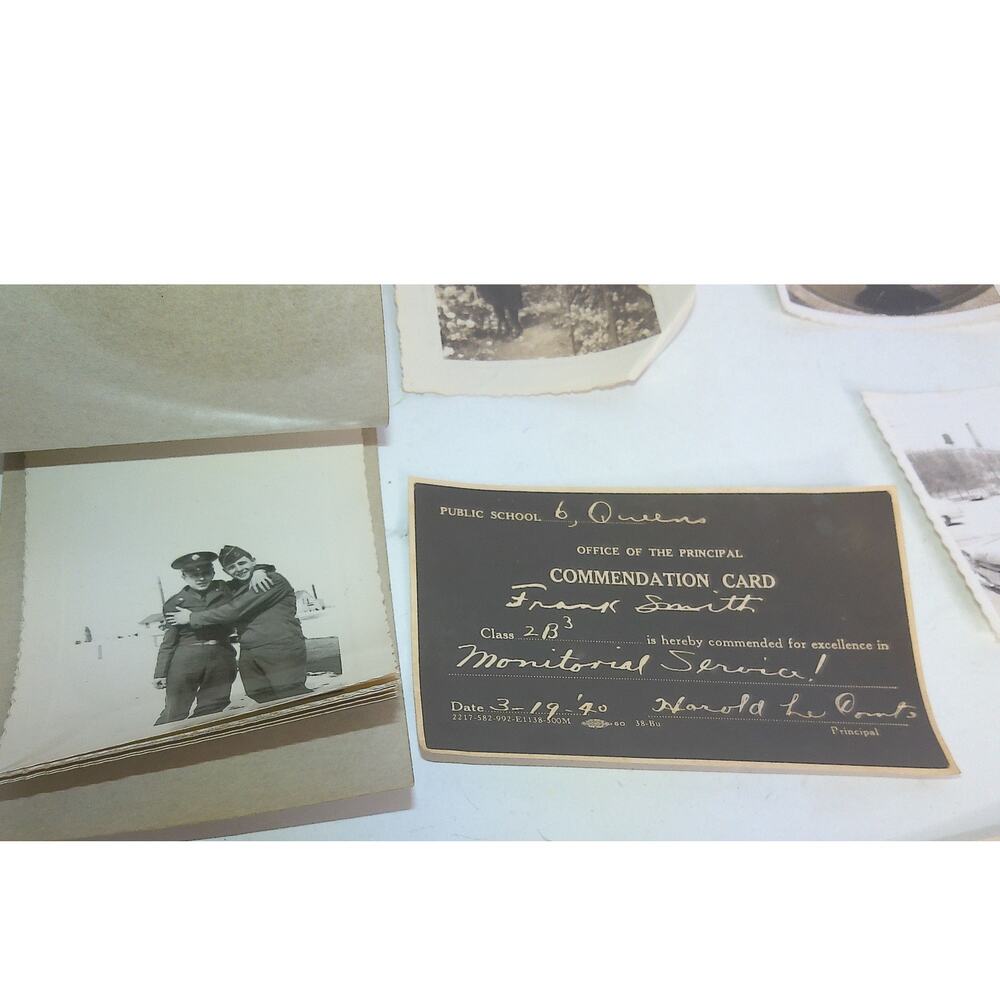 PUBLIC SCHOOL 6, Queens
OFFICE OF THE PRINCIPAL
COMMENDATION CARD
Frank Smith
Class 2B3 is hereby commended for excellence in
Monitorial Service!
Date 3-19-'40 Harold Le
2217-582-992-E1138-500M 60 38-Bu
Principal